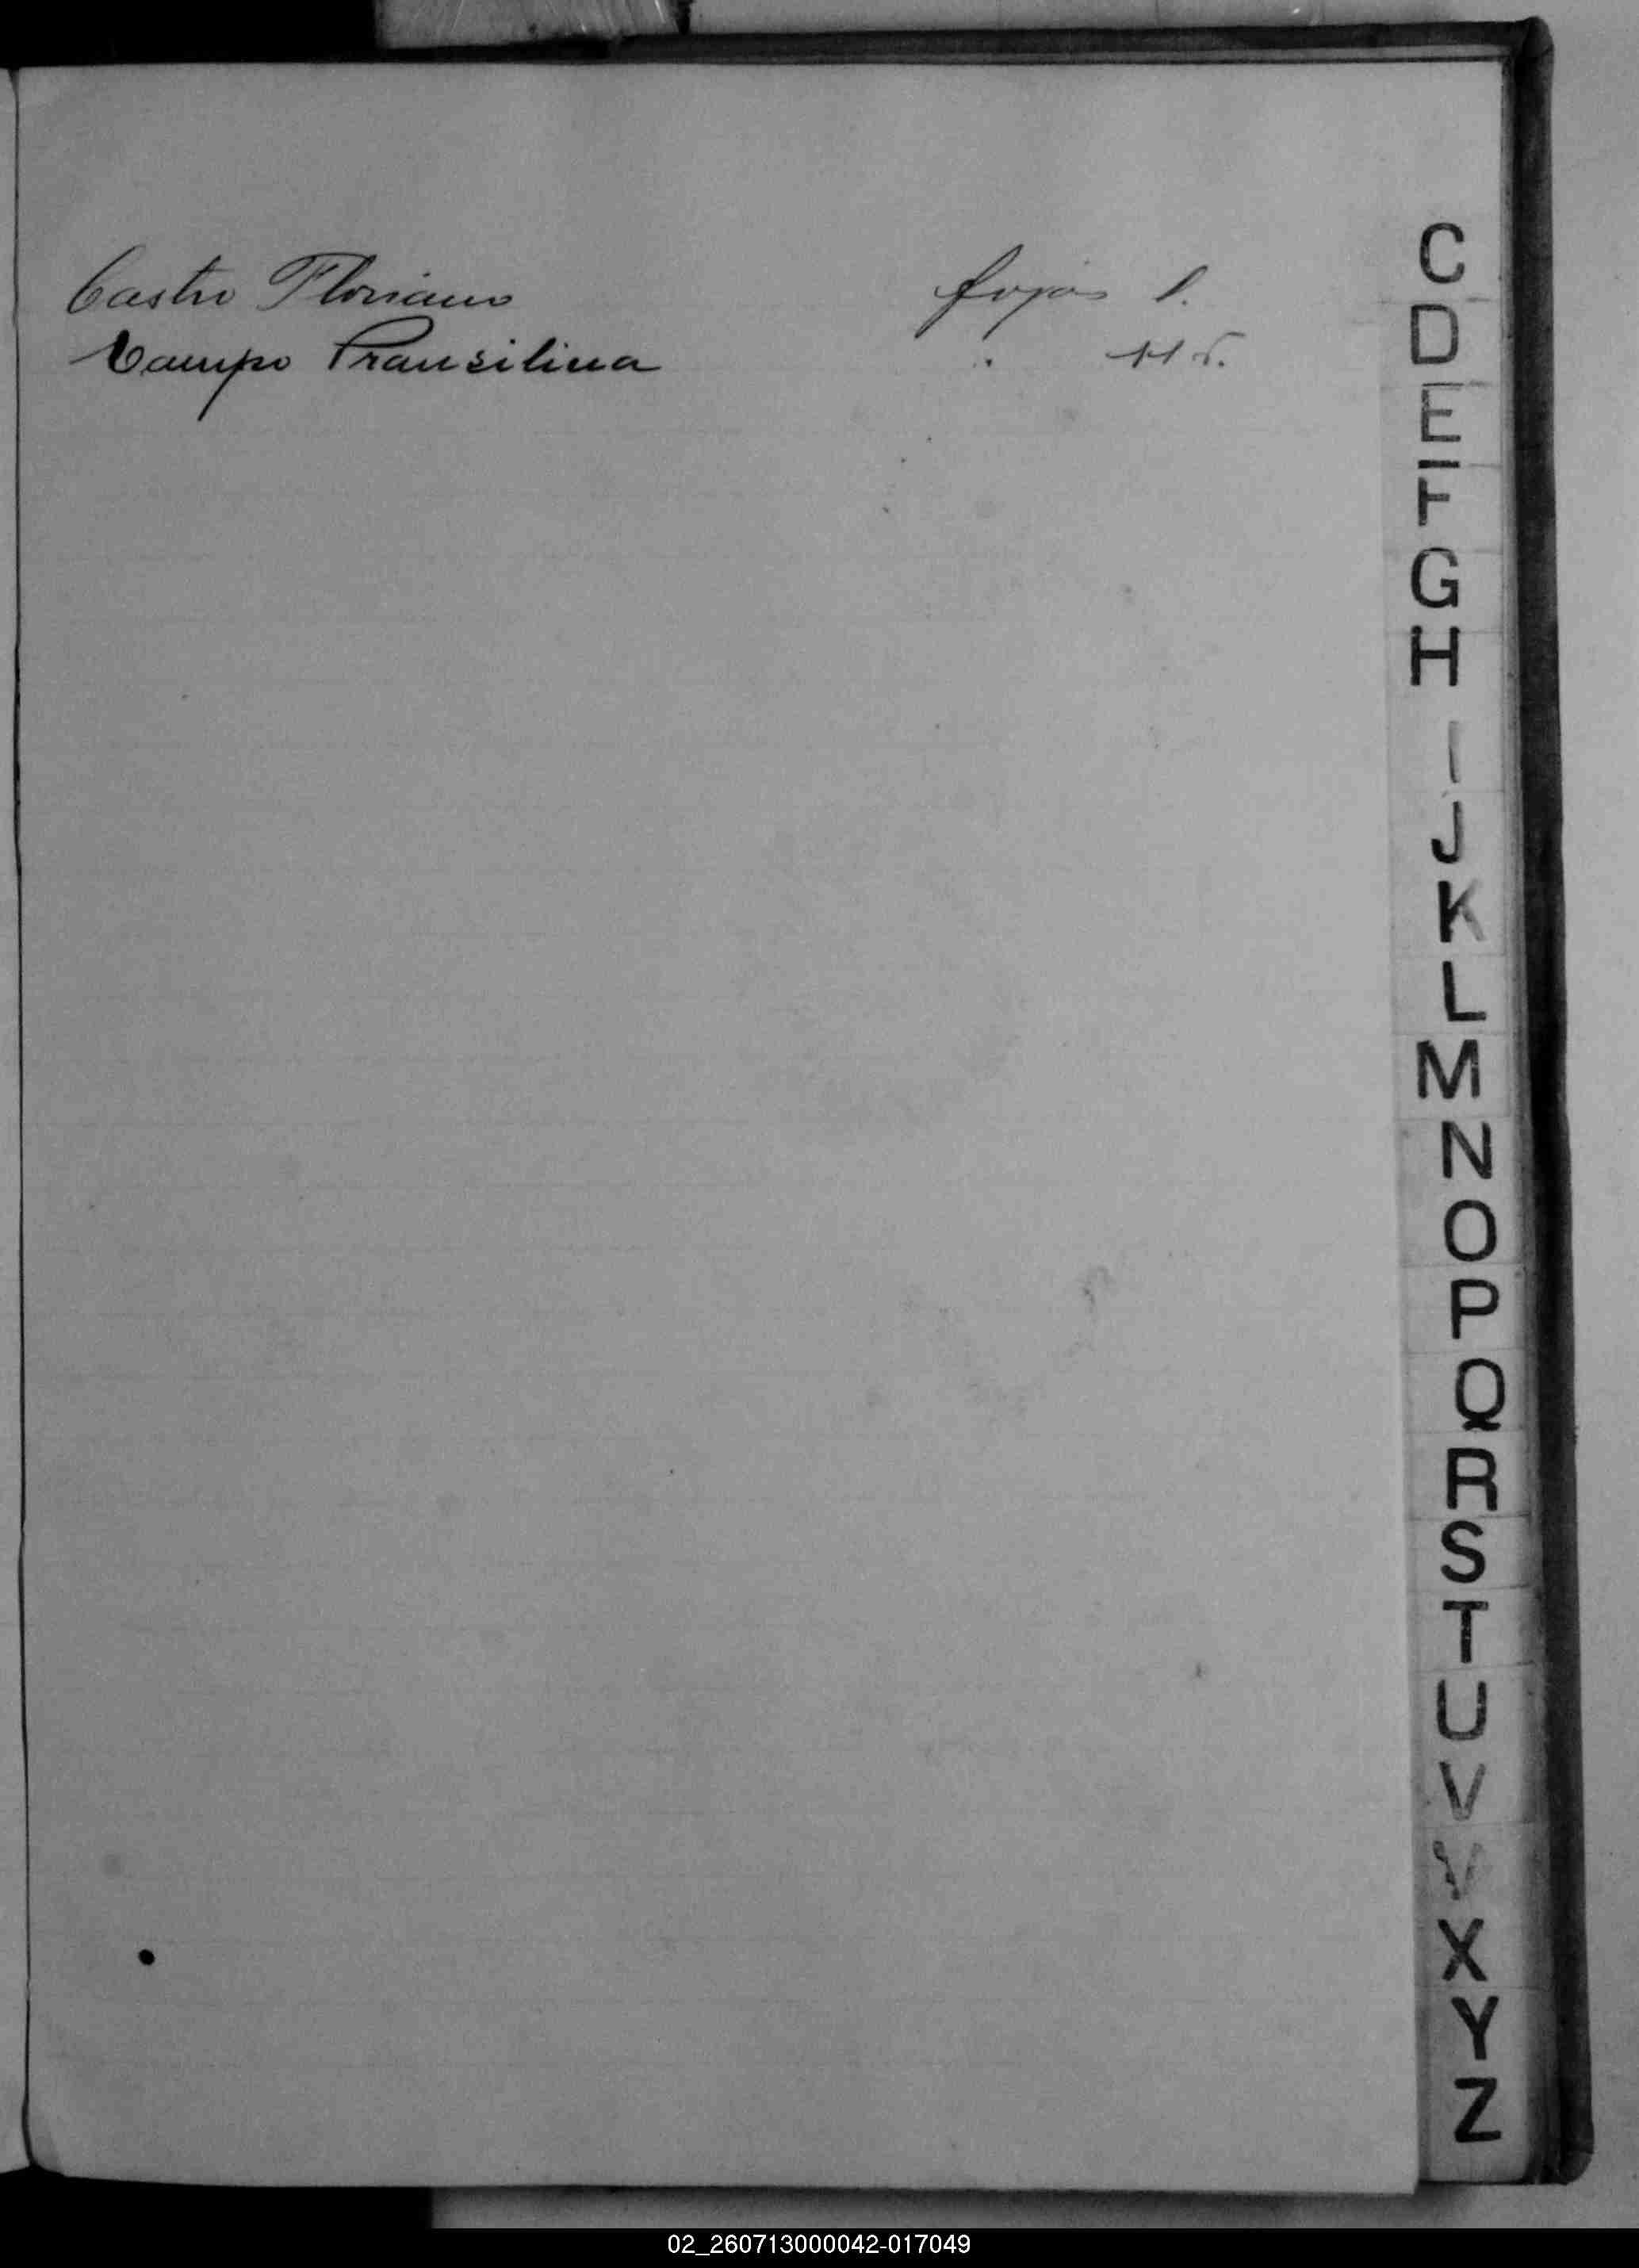 Castro Floriano fojas 1.
Campo Transilina " 115.
C
D
E
F
G
H
I
J
K
L
M
N
O
P
Q
R
S
T
U
V
X
Y
Z
02_260713000042-017049